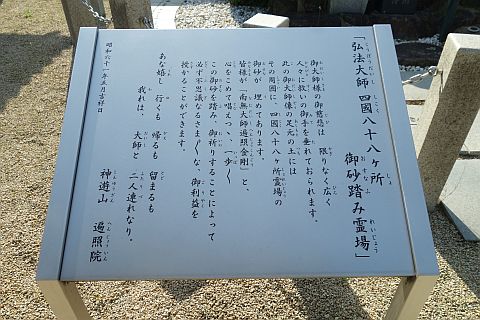 「弘法大師 四國八十八ヶ所
御砂踏み霊場」
御大師様の御慈悲は 限りなく広く
人々に救いの御手を垂れておられます。
此の御大師像の足元の土には
その周囲に、四國八十八ヶ所霊場の
御砂が 埋めてあります。
皆様が「南無大師遍照金剛」と、
心をこめて唱えつゝ、一歩〱
この御砂を踏み、御祈りすることによって
必ず不思議なさま〲な、御利益を
授かることができます。
あな嬉し 行くも 帰るも 留まるも
我れは、大師と 二人連れなり。
神遊山 遍照院
昭和六十一年五月吉祥日